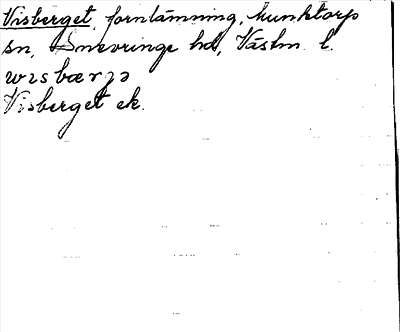 Visberget, fornlämning, Munktorps
sn, Snevringe hd, Västm. l.
wısbærjə
Visberget ek.